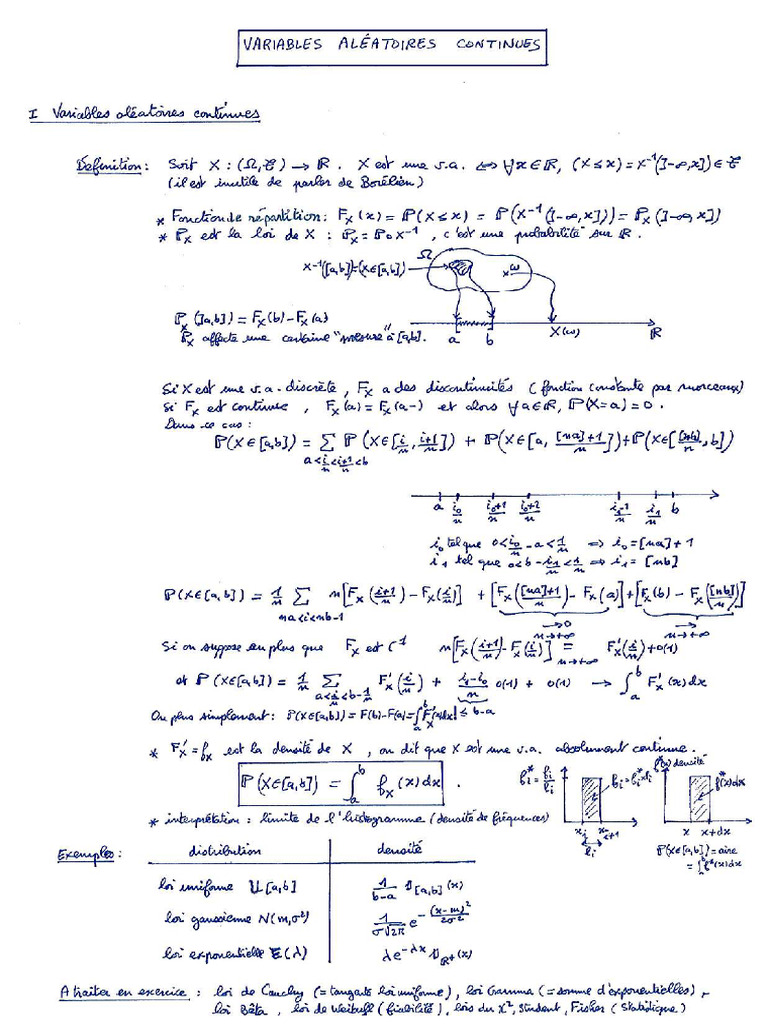 VARIABLES ALÉATOIRES CONTINUES
I Variables aléatoires continues
Définition : Soit X : (Ω, 𝒞) → ℝ. X est une v.a. ⟺ ∀x∈ℝ, (X≤x) = X⁻¹(]-∞,x]) ∈ 𝒞
(il est inutile de parler de Borélien)
* Fonction de répartition : F_X(x) = P(X≤x) = P(X⁻¹(]-∞,x])) = P_X(]-∞,x])
* P_X est la loi de X : P_X = P∘X⁻¹, c'est une probabilité sur ℝ.
X⁻¹([a,b]) = (X∈[a,b]) Ω ×ω
P_X(]a,b]) = F_X(b) - F_X(a)
a b X(ω) ℝ
P_X affecte une certaine "mesure" à [a,b].
Si X est une v.a. discrète, F_X a des discontinuités (fonction constante par morceaux)
Si F_X est continue, F_X(a) = F_X(a-) et alors ∀a∈ℝ, P(X=a) = 0.
Dans ce cas :
P(X∈[a,b]) = ∑_{a<i/n<(i+1)/n<b} P(X∈[i/n, (i+1)/n]) + P(X∈[a, ([na]+1)/n]) + P(X∈[[nb]/n, b])
a i₀/n (i₀+1)/n (i₀+2)/n (i₁-1)/n i₁/n b
i₀ tel que 0 < i₀/n - a < 1/n ⟹ i₀ = [na]+1
i₁ tel que 0 < b - i₁/n < 1/n ⟹ i₁ = [nb]
P(X∈[a,b]) = 1/n ∑_{na<i<nb-1} n[F_X((i+1)/n) - F_X(i/n)] + [F_X(([na]+1)/n) - F_X(a)] + [F_X(b) - F_X([nb]/n)]
→0 n→+∞ → n→+∞
Si on suppose en plus que F_X est C¹ n[F_X((i+1)/n) - F_X(i/n)] =_{n→+∞} F'_X(i/n) + o(1)
et P(X∈[a,b]) = 1/n ∑_{a<i/n<b-1/n} F'_X(i/n) + (i₁-i₀)/n o(1) + o(1) → ∫_a^b F'_X(x)dx
≤ b-a
Ou plus simplement : P(X∈[a,b]) = F(b) - F(a) = ∫_a^b F'_X(x)dx !
* F'_X = f_X est la densité de X, on dit que X est une v.a. absolument continue.
P(X∈[a,b]) = ∫_a^b f_X(x)dx .
* interprétation : limite de l'histogramme (densité de fréquences)
h_i* = f_i/l_i f_i = h_i* × l_i x_i x_{i+1} l_i
f(x) densité f*(x)dx x x+dx
P(X∈[a,b]) = aire
= ∫_a^b f*(x)dx
Exemples : distribution densité
loi uniforme U[a,b] 1/(b-a) 𝟙_{[a,b]}(x)
loi gaussienne N(m,σ²) 1/(σ√2π) e^{-(x-m)²/2σ²}
loi exponentielle E(λ) λe^{-λx} 𝟙_{ℝ⁺}(x)
A traiter en exercice : loi de Cauchy (= tangate loi uniforme), loi Gamma (= somme d'exponentielles),
loi Bêta, loi de Weibull (fiabilité), lois du χ², Student, Fisher (Statistique)